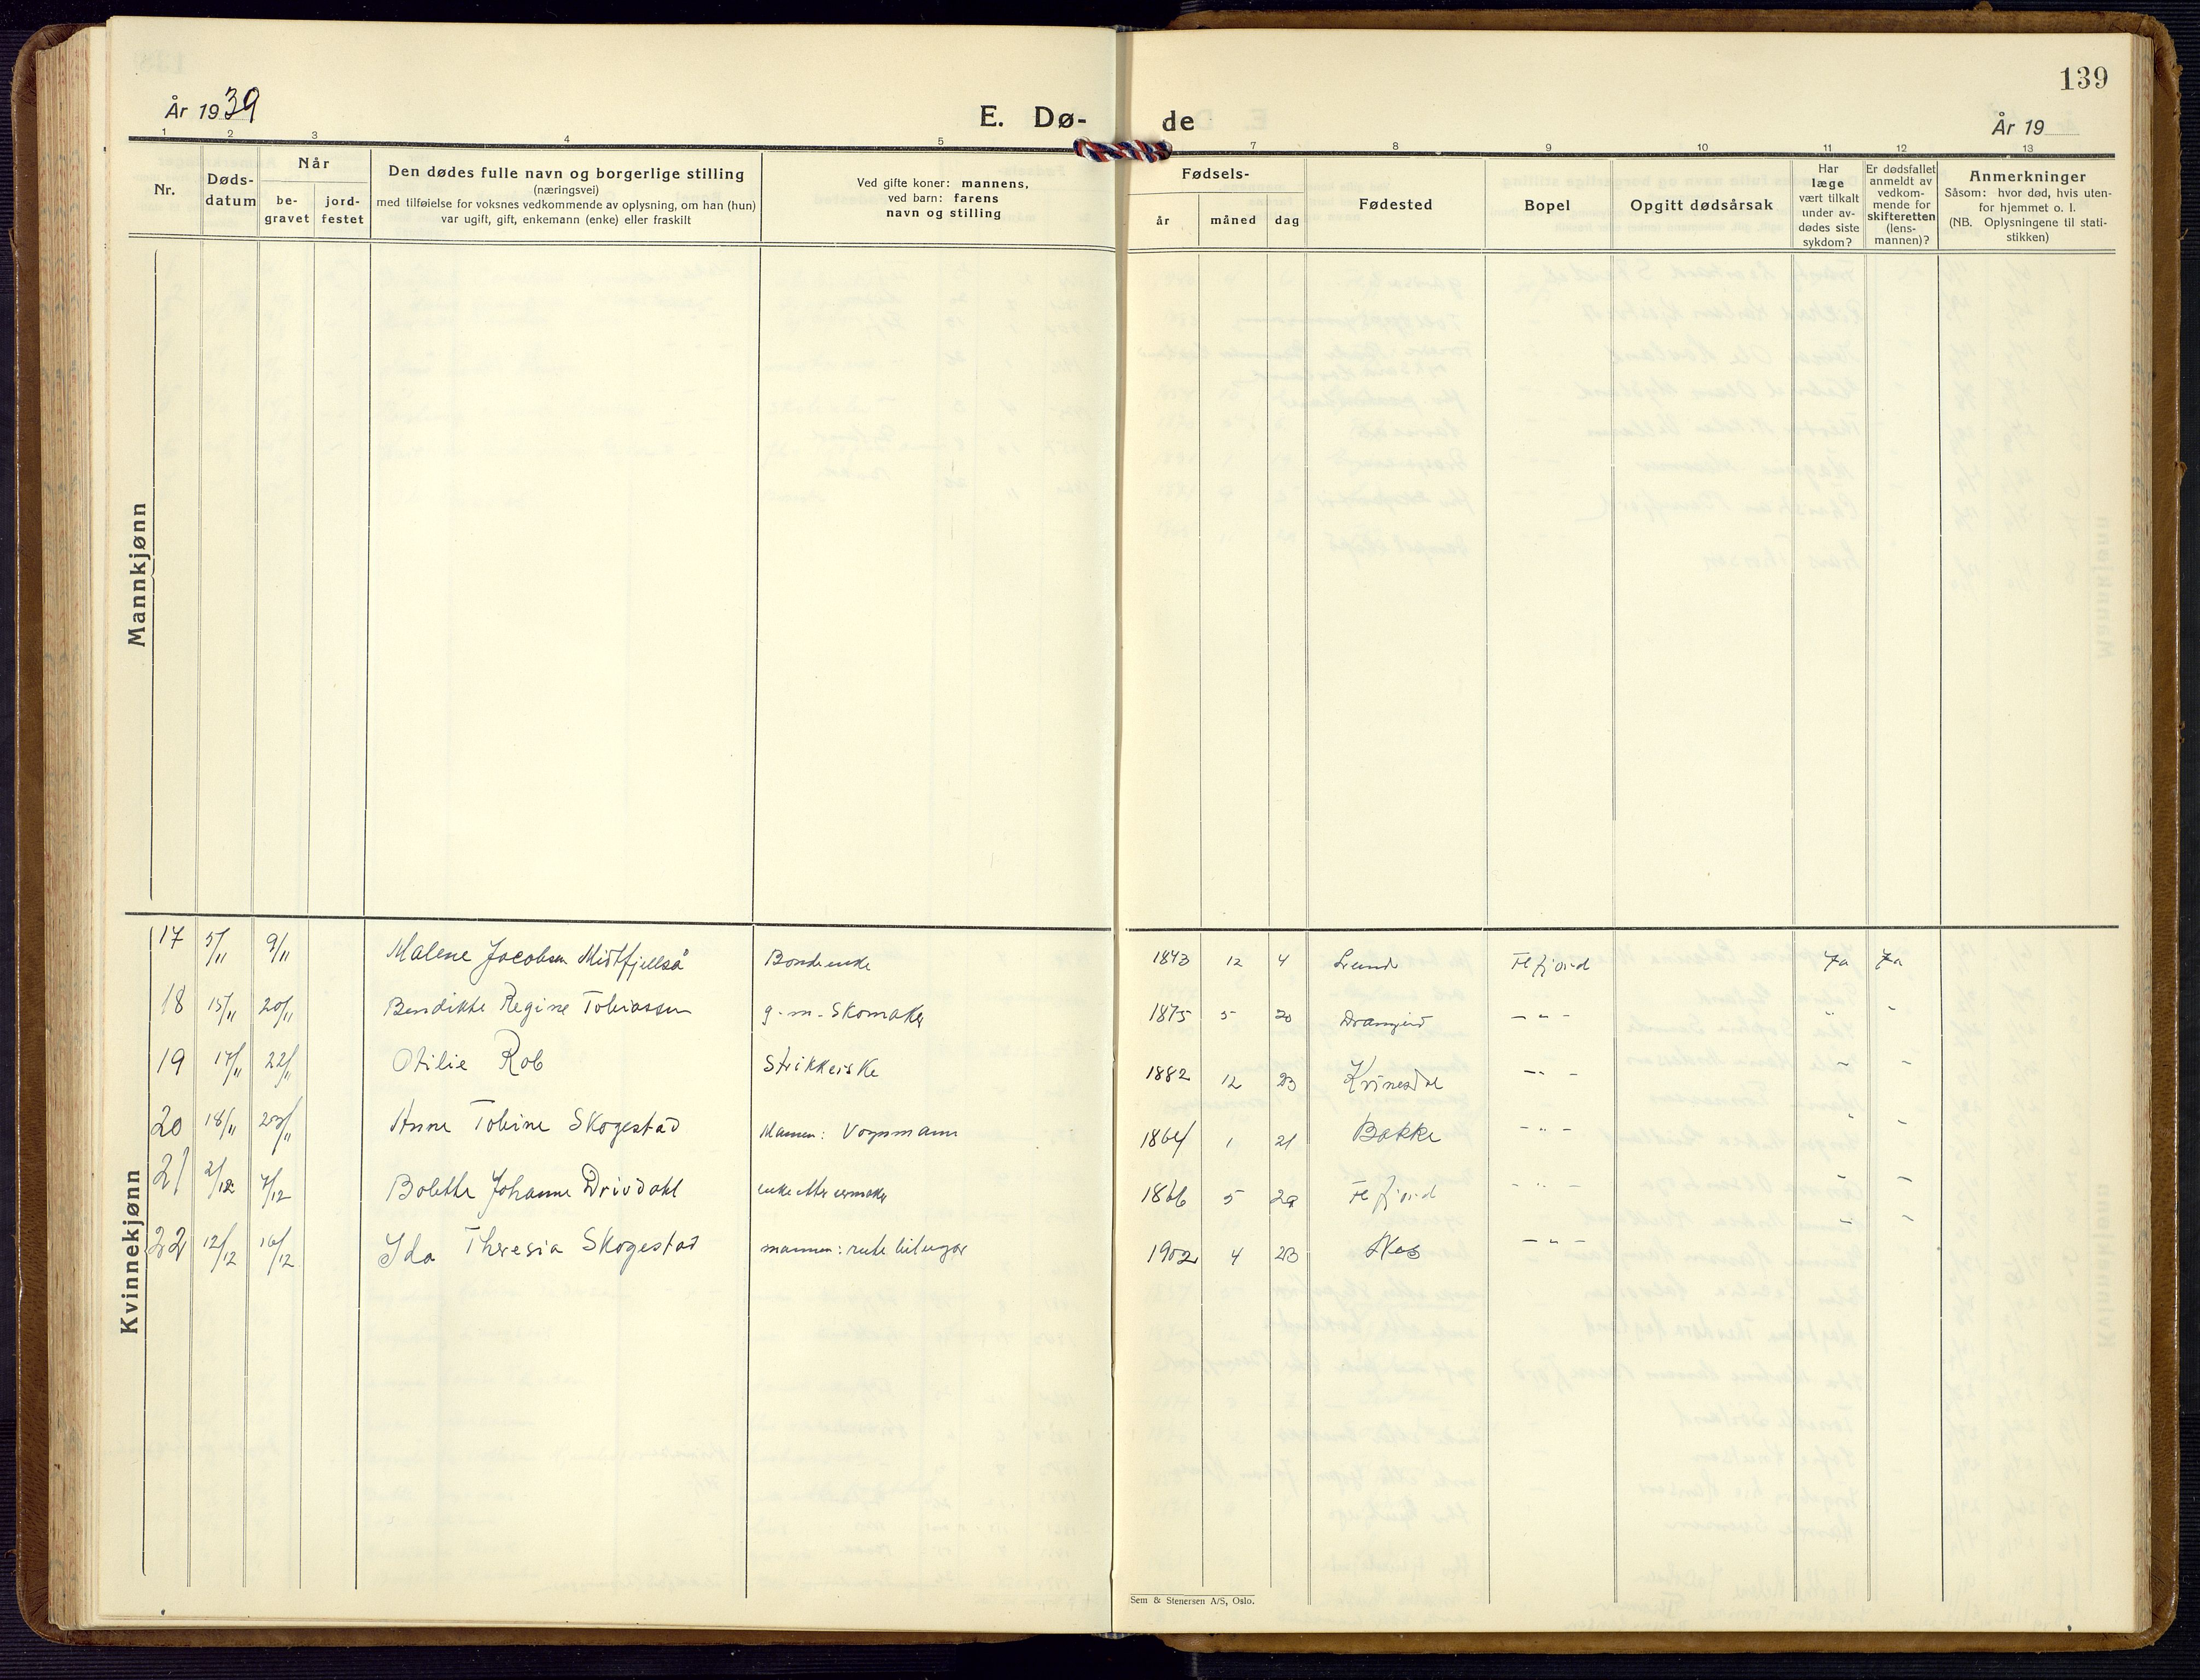 139
År 1939
E. Dø-
de
År 19
1 2 3 4 5 7 8 9 10 11 12 13
Nr.
Døds-
datum
Når
be-
gravet
jord-
festet
Den dødes fulle navn og borgerlige stilling
(næringsvei)
med tilføielse for voksnes vedkommende av oplysning, om han (hun)
var ugift, gift, enkemann (enke) eller fraskilt
Ved gifte koner: mannens,
ved barn: farens
navn og stilling
Fødsels-
år
måned
dag
Fødested
Bopel
Opgitt dødsårsak
Har
læge
vært tilkalt
under av-
dødes siste
sykdom?
Er dødsfallet
anmeldt av
vedkom-
mende for
skifteretten
(lens-
mannen)?
Anmerkninger
Såsom: hvor død, hvis uten-
for hjemmet o. l.
(NB. Oplysningene til stati-
stikken)
Mannkjønn
Kvinnekjønn
17 5/11 9/11 Malene Jacobsen Midtfjellså Bondeenke 1843 12 4 Lunde Flefjord Ja Ja
18 15/11 20/11 Bendikte Regine Tobiassen g. m. Skomaker 1875 5 20 - " - " "
19 17/11 22/11 Otilie Rob Strikkerske 1882 12 23 Kvinesdal - " - " "
20 18/11 23/11 Anne Tobine Skogestad Mannen: Vognmann 1864 1 21 Bakke - " - " "
21 2/12 7/12 Bolette Johanne Drivdahl enke etter urmaker 1866 5 29 Flefjord - " - " "
22 12/12 16/12 Ida Theresia Skogestad mannen: rutebileigar 1902 4 23 Nes - " - " "
Sem & Stenersen A/S, Oslo.